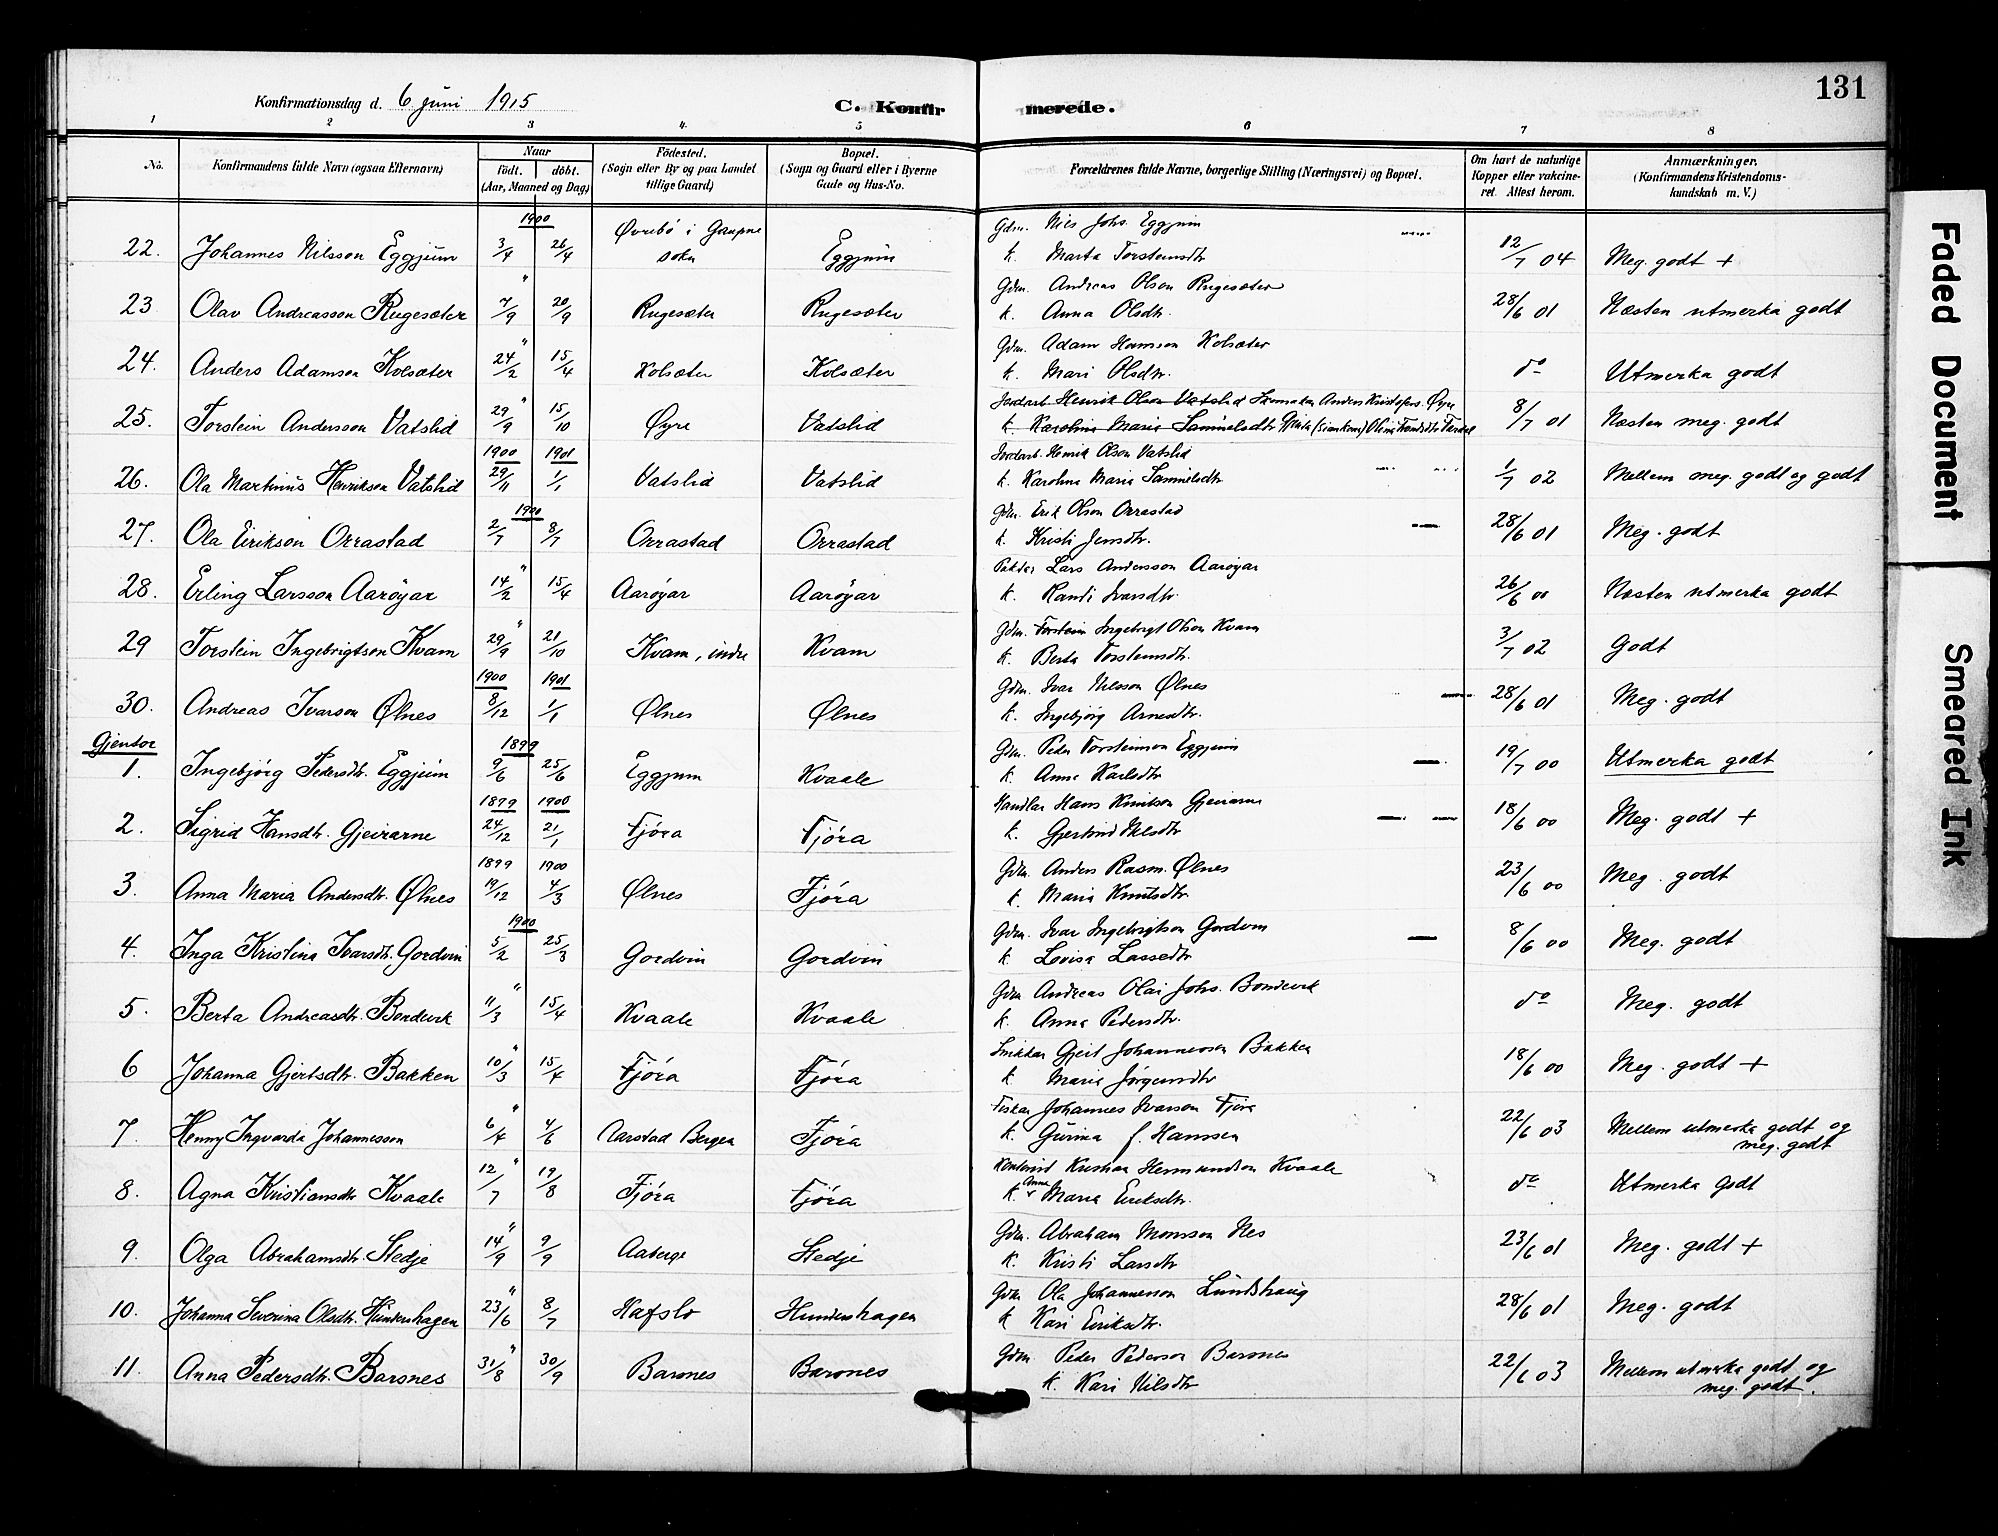 131
Konfirmationsdag d. 6 juni 1915
C. Konfir merede.
1 2 3 4. 5 6 7 8
No. Konfirmandens fulde Navn (ogsaa Efternavn) Naar Födt. döbt. (Aar, Maaned og Dag) Födested. (Sogn eller By og paa Landet tillige Gaard) Bopæl. (Sogn og Gaard eller i Byerne Gade og Hus-No. Forældrenes fulde Navne, borgerlige Stilling (Næringsvei) og Bopæl. Om havt de naturlige Kopper eller vakcineret. Attest herom. Anmærkninger. (Konfirmandens Kristendomskundskab m. V.)
1900 Øvrebö i Gaupne Gdm. Nils Johs. Eggjum
22. Johannes Nilsson Eggjum 3/4 26/4 sokn Eggjum k. Marta Torsteinsdtr 12/7 04 Meg. godt +
" Gdm. Andreas Olson Rugesæter
23 Olav Andreasson Rugesæter 7/9 20/9 Rugesæter Rugesæter k. Anna Olsdtr. 28/6 01 Næsten utmerka godt
" Gdm. Adam Hansson Kolsæter
24. Anders Adamson Kolsæter 24/2 15/4 Kolsæter Kolsæter k. Mari Olsdtr. do Utmerka godt
" Jordarb Henrik Olson Vatslid Skomaker Anders Kristofers. Øyre
25. Torstein Andersson Vatslid 29/9 15/10 Øyre Vatslid k. Karolina Maria Samuelsdtr 8/7 01 Næsten meg. godt
1900 1901 Jordarb. Henrik Olson Vatslid
26. Ola Martinus Henrikson Vatslid 29/11 1/1 Vatslid Vatslid k. Karolina Maria Samuelsdtr 1/7 02 Mellem meg. godt og godt
1900 Gdm. Erik Olson Orrastad
27. Ola Eirikson Orrastad 2/7 8/7 Orrastad Orrastad k. Kristi Jensdtr. 28/6 01 Meg. godt
" Lars Andersson Aarøyar
28. Erling Larsson Aarøyar 14/2 15/4 Aarøyar Aarøyar k. Randi Ivarsdtr. 26/6 00 Næsten utmerka godt
" Gdm. Torstein Ingebrigt Olson Kvam
29 Torstein Ingebrigtson Kvam 29/9 21/10 Kvam, indre Kvam k. Berta Torsteinsdtr. 3/7 02 Godt
1900 1901 Gdm. Ivar Nilsson Ølnes
30. Andreas Ivarson Ølnes 8/12 1/1 Ølnes Ølnes k. Ingebjörg Arnesdtr. 28/6 01 Meg. godt
Gjentor 1899 Gdm. Peder Torsteinson Eggjum
1. Ingebjörg Pedersdtr. Eggjum 9/6 25/6 Eggjum Kvaale k. Anna Karlsdtr 19/7 00 Utmerka godt
1899 1900 Handlar Hans Knutson Gjeirarne
2. Sigrid Hansdtr. Gjeirarne 24/12 21/1 Fjöra Fjöra k. Gjertrud Nilsdtr 18/6 00 Meg. godt +
1899 1900 Gdm. Anders Rasm. Ølnes
3. Anna Maria Andersdtr. Ølnes 19/12 4/3 Ølnes Fjöra k. Maria Knutsdtr. 23/6 00 Meg. godt
1900 Gdm. Ivar Ingebrigtson Gordvin
4. Inga Kristina Ivarsdtr. Gordvin 5/2 25/3 Gordvin Gordvin k. Lovisa Lassedtr 8/6 00 Meg. godt
" Gdm Andreas Olai Johs. Bondevik
5. Berta Andreasdtr. Bondevik 11/3 15/4 Kvaale Kvaale k. Anna Pedersdtr. do Meg. godt
" Snikkar Gjert Johannesson Bakken
6 Johanna Gjertsdtr. Bakken 10/3 15/4 Fjöra Fjöra k Maria Jörgensdtr 18/6 00 Meg. godt +
" Fiskar Johannes Ivarson Fjöra
7. Henny Ingvarda Johannesson 6/4 4/6 Aarstad Bergen Fjöra k. Gurina f. Hanssen 22/6 03 Mellem utmerka godt og meg. godt
" Kristian Hermundson Kvaale
8. Agna Kristiansdtr Kvaale 12/7 19/8 Fjöra Fjöra k. Anna Maria Eiriksdtr. do Utmerka godt
" Gdm. Abraham Monsson Nes
9. Olga Abrahamsdtr. Stedje 14/9 9/9 Aaberge Stedje k. Kristi Larsdtr 23/6 01 Meg. godt +
" Gdm Ola Johannesson Lundshaug
10. Johanna Severina Olsdtr. Hundershagen 23/6 8/7 Hafslo Hundershagen k Kari Eiriksdtr. 28/6 01 Meg. godt
" Gdm Peder Pederson Barsnes
11. Anna Pedersdtr. Barsnes 31/8 30/9 Barsnes Barsnes k. Kari Nilsdtr 22/6 03 Mellem utmerka godt og meg. godt.
Faded Document
Smeared Ink